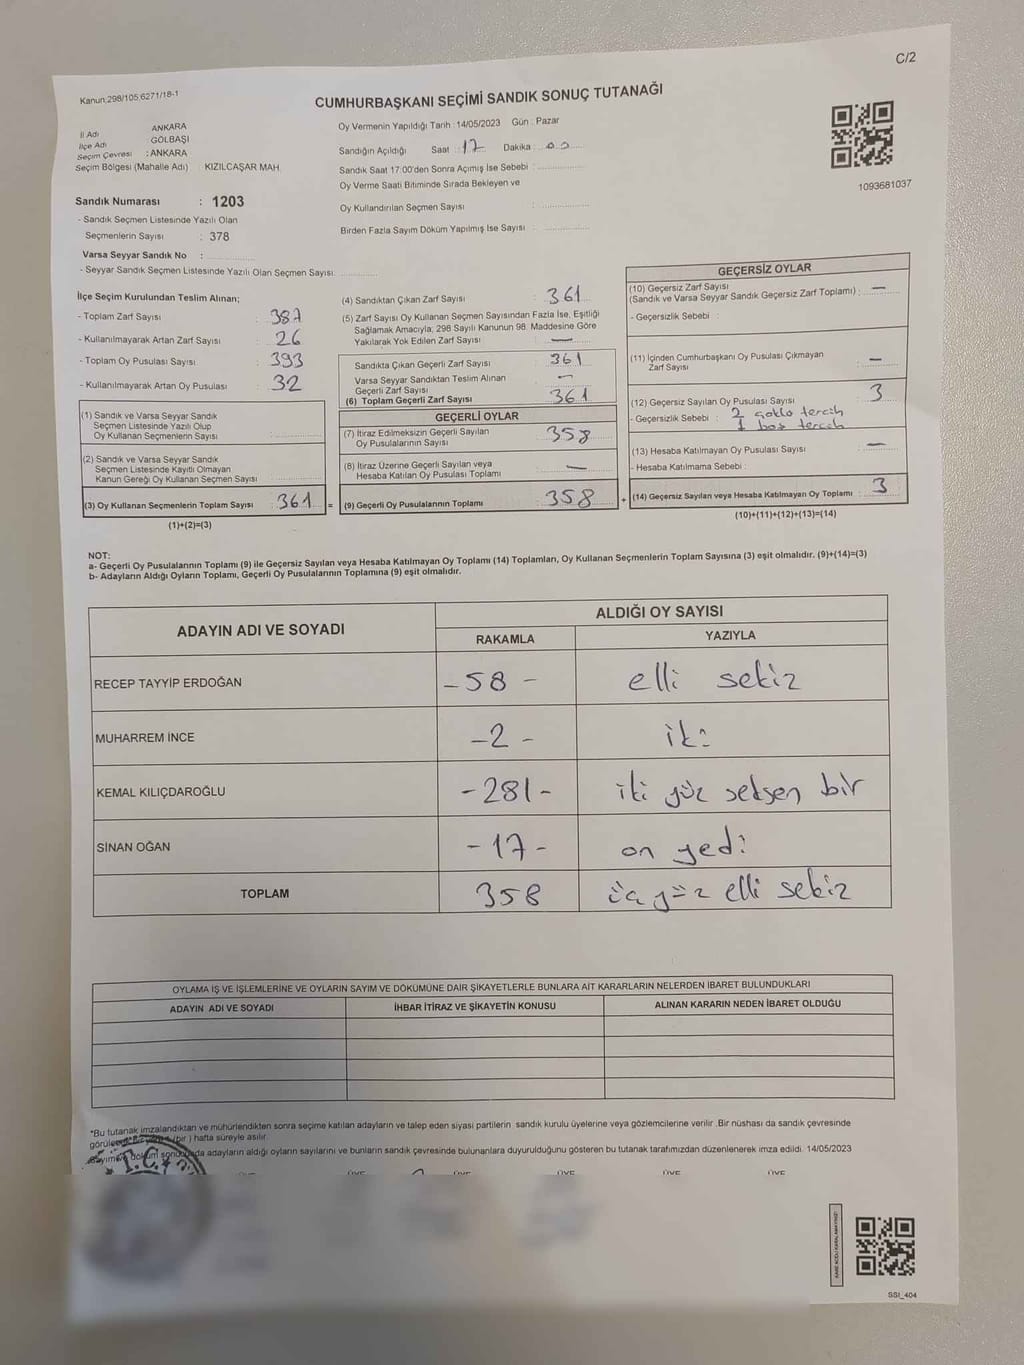 C/2
Kanun:298/105,6271/18-1
CUMHURBAŞKANI SEÇİMİ SANDIK SONUÇ TUTANAĞI
İl Adı ANKARA
İlçe Adı GÖLBAŞI
Seçim Çevresi : ANKARA
Seçim Bölgesi (Mahalle Adı) : KIZILCAŞAR MAH.
Oy Vermenin Yapıldığı Tarih : 14/05/2023 Gün : Pazar
Sandığın Açıldığı Saat : 17 Dakika : 00
Sandık Saat 17:00'den Sonra Açımış İse Sebebi :
Oy Verme Saati Bitiminde Sırada Bekleyen ve
Oy Kullandırılan Seçmen Sayısı :
Birden Fazla Sayım Döküm Yapılmış İse Sayısı :
1093681037
Sandık Numarası : 1203
- Sandık Seçmen Listesinde Yazılı Olan
Seçmenlerin Sayısı : 378
Varsa Seyyar Sandık No :
- Seyyar Sandık Seçmen Listesinde Yazılı Olan Seçmen Sayısı:
İlçe Seçim Kurulundan Teslim Alınan;
- Toplam Zarf Sayısı : 387
- Kullanılmayarak Artan Zarf Sayısı : 26
- Toplam Oy Pusulası Sayısı : 393
- Kullanılmayarak Artan Oy Pusulası : 32
(1) Sandık ve Varsa Seyyar Sandık
Seçmen Listesinde Yazılı Olup
Oy Kullanan Seçmenlerin Sayısı :
(2) Sandık ve Varsa Seyyar Sandık
Seçmen Listesinde Kayıtlı Olmayan
Kanun Gereği Oy Kullanan Seçmen Sayısı :
(3) Oy Kullanan Seçmenlerin Toplam Sayısı : 361 =
(1)+(2)=(3)
(4) Sandıktan Çıkan Zarf Sayısı : 361
(5) Zarf Sayısı Oy Kullanan Seçmen Sayısından Fazla İse, Eşitliği
Sağlamak Amacıyla; 298 Sayılı Kanunun 98. Maddesine Göre
Yakılarak Yok Edilen Zarf Sayısı : —
Sandıkta Çıkan Geçerli Zarf Sayısı : 361
Varsa Seyyar Sandıktan Teslim Alınan
Geçerli Zarf Sayısı : —
(6) Toplam Geçerli Zarf Sayısı : 361
GEÇERLİ OYLAR
(7) İtiraz Edilmeksizin Geçerli Sayılan
Oy Pusulalarının Sayısı : 358
(8) İtiraz Üzerine Geçerli Sayılan veya
Hesaba Katılan Oy Pusulası Toplamı : —
(9) Geçerli Oy Pusulalarının Toplamı : 358 +
GEÇERSİZ OYLAR
(10) Geçersiz Zarf Sayısı
(Sandık ve Varsa Seyyar Sandık Geçersiz Zarf Toplamı) : —
- Geçersizlik Sebebi :
(11) İçinden Cumhurbaşkanı Oy Pusulası Çıkmayan
Zarf Sayısı : —
(12) Geçersiz Sayılan Oy Pusulası Sayısı : 3
- Geçersizlik Sebebi : 2 çoklu tercih
1 boş tercih
(13) Hesaba Katılmayan Oy Pusulası Sayısı : —
- Hesaba Katılmama Sebebi :
(14) Geçersiz Sayılan veya Hesaba Katılmayan Oy Toplamı : 3
(10)+(11)+(12)+(13)=(14)
NOT:
a- Geçerli Oy Pusulalarının Toplamı (9) ile Geçersiz Sayılan veya Hesaba Katılmayan Oy Toplamı (14) Toplamları, Oy Kullanan Seçmenlerin Toplam Sayısına (3) eşit olmalıdır. (9)+(14)=(3)
b- Adayların Aldığı Oyların Toplamı, Geçerli Oy Pusulalarının Toplamına (9) eşit olmalıdır.
ADAYIN ADI VE SOYADI ALDIĞI OY SAYISI
RAKAMLA YAZIYLA
RECEP TAYYİP ERDOĞAN - 58 - elli sekiz
MUHARREM İNCE - 2 - iki
KEMAL KILIÇDAROĞLU - 281 - iki yüz seksen bir
SİNAN OĞAN - 17 - on yedi
TOPLAM 358 üç yüz elli sekiz
OYLAMA İŞ VE İŞLEMLERİNE VE OYLARIN SAYIM VE DÖKÜMÜNE DAİR ŞİKAYETLERLE BUNLARA AİT KARARLARIN NELERDEN İBARET BULUNDUKLARI
ADAYIN ADI VE SOYADI İHBAR İTİRAZ VE ŞİKAYETİN KONUSU ALINAN KARARIN NEDEN İBARET OLDUĞU
*Bu tutanak imzalandıktan ve mühürlendikten sonra seçime katılan adayların ve talep eden siyasi partilerin sandık kurulu üyelerine veya gözlemcilerine verilir .Bir nüshası da sandık çevresinde
(bir ) hafta süreyle asılır.
adayların aldığı oyların sayılarını ve bunların sandık çevresinde bulunanlara duyurulduğunu gösteren bu tutanak tarafımızdan düzenlenerek imza edildi. 14/05/2023
T.C.
ÜYE ÜYE ÜYE ÜYE
SSI_404